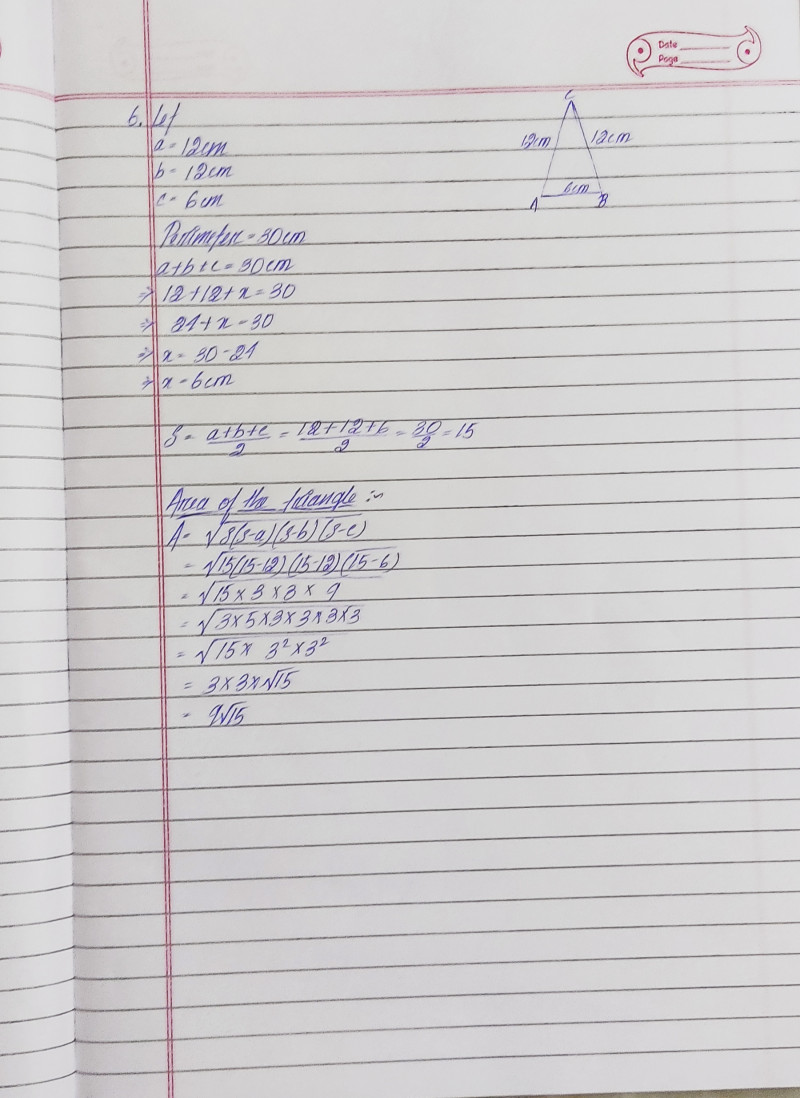 Date
Page
6. Let
a = 12cm
b = 12cm
c = 6cm
C
12cm
12cm
6cm
A
B
Perimeter = 30cm
a+b+c = 30cm
⇒ 12+12+x = 30
⇒ 24+x = 30
⇒ x = 30-24
⇒ x = 6cm
S = a+b+c/2 = 12+12+6/2 = 30/2 = 15
Area of the triangle :~
A = √s(s-a)(s-b)(s-c)
= √15(15-12)(15-12)(15-6)
= √15 × 3 × 3 × 9
= √3×5×3×3×3×3
= √15 × 3² × 3²
= 3×3×√15
= 9√15